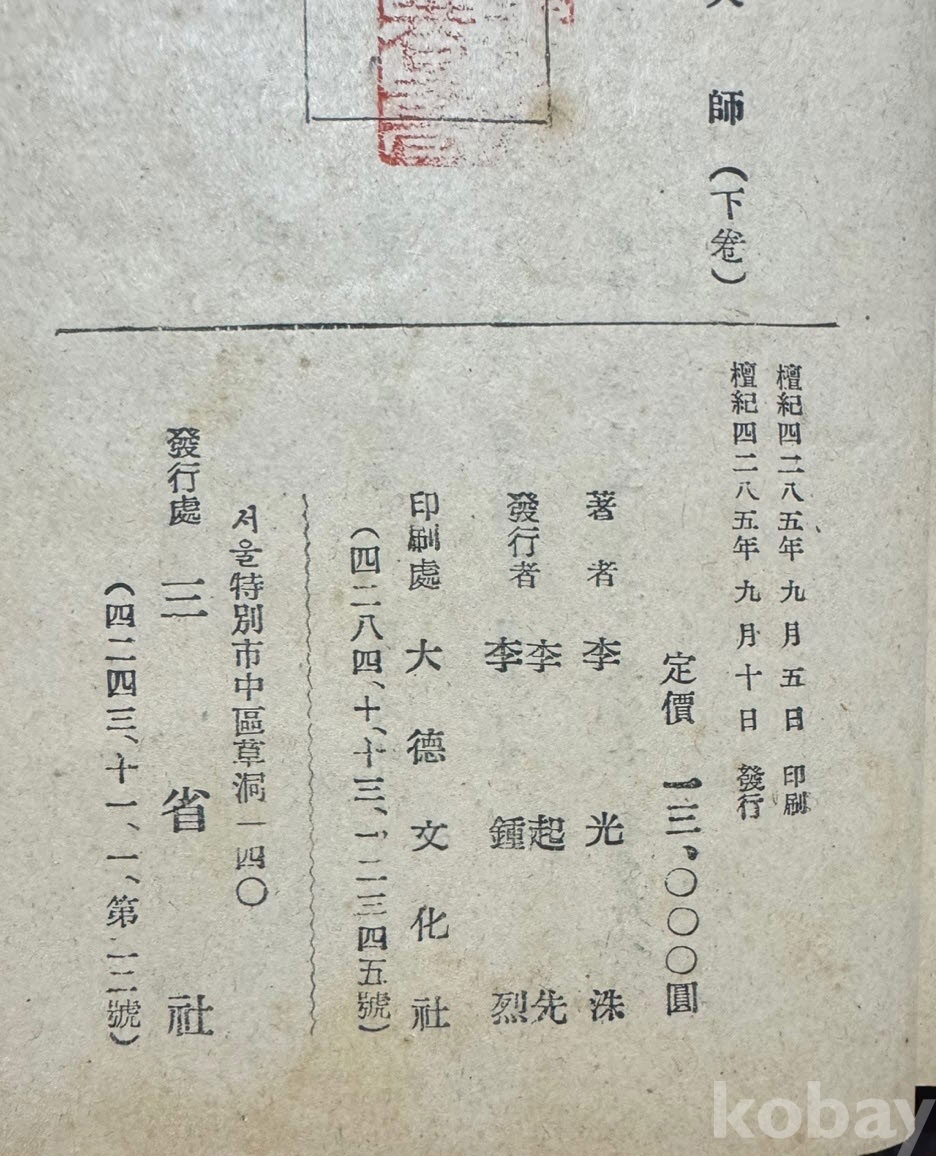 師（下卷）
檀紀四二八五年九月五日 印刷
檀紀四二八五年九月十日 發行
定價 一三、〇〇〇圓
著者 李光洙
發行者 李起先
李鍾烈
印刷處 大德文化社
（四二八四、十、十三、一二三四五號）
서울特別市中區草洞一四〇
發行處 三省社
（四二四三、十一、一、第一二號）
kobay